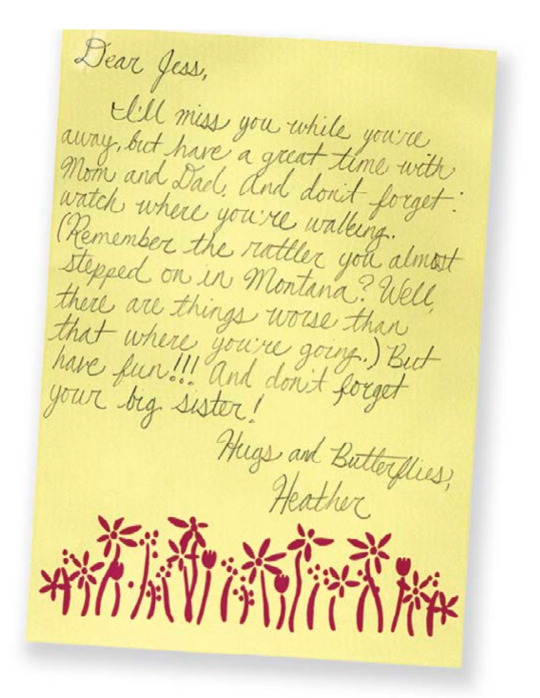 Dear Jess,
I'll miss you while you're
away, but have a great time with
Mom and Dad. And don't forget:
watch where you're walking.
(Remember the rattler you almost
stepped on in Montana? Well,
there are things worse than
that where you're going.) But
have fun!!! And don't forget
your big sister!
Hugs and Butterflies,
Heather